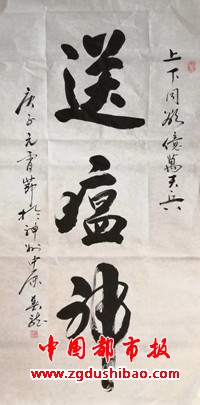 上下同欲億萬天兵
送瘟神
庚子元宵節於神州中原吳龍
中國都市报
www.zgdushibao.com